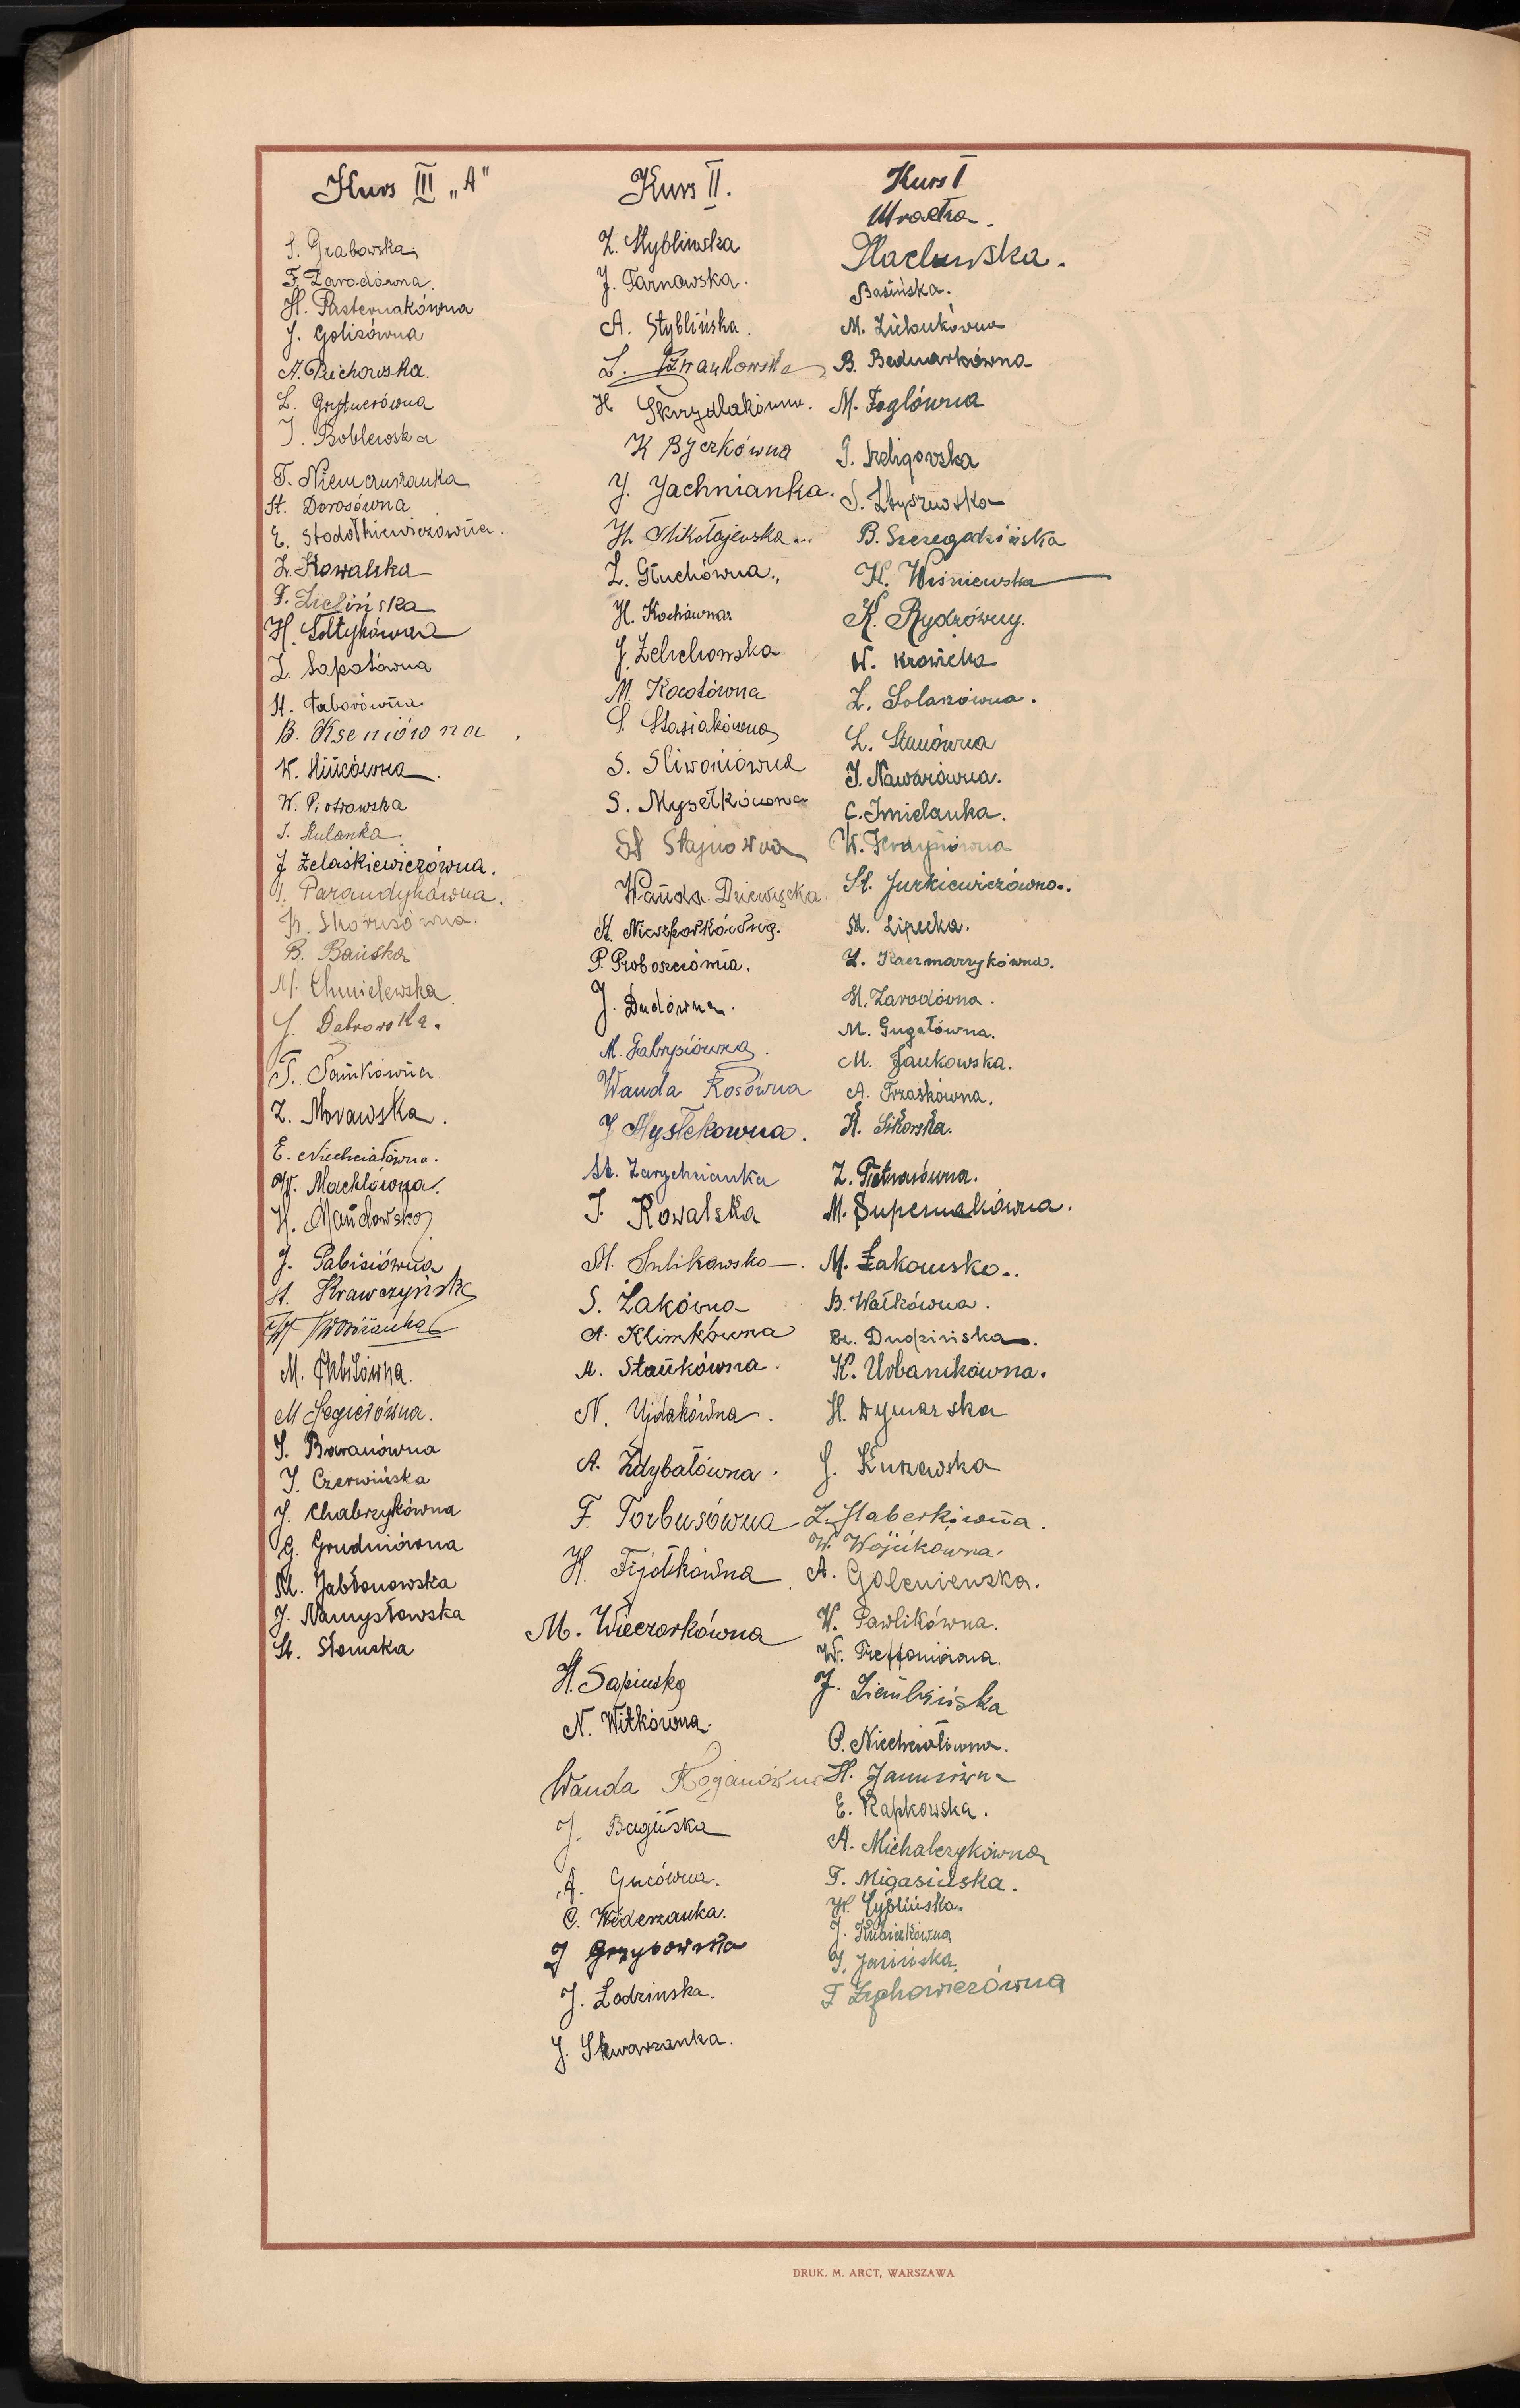 Kurs III „A"
S. Grabowska
F. Zawodówna.
H. Pasternakówna
J. Golisówna
A. Puchowska.
L. Grytnerówna
J. Boblewska
T. Niemczuszanka
St. Dorosówna
E. Stodółkiewiczówna.
Z. Kowalska
F. Zielińska
H. Sołtykówna
Z. Sapałówna
St. Taborówna
B. Kseniówna
W.
W. Piotrowska
J. Kulanka.
J Żelaśkiewiczówna.
J. Parandykówna.
K. Skorusówna.
B. Bańska
M. Chmielewska
J. Dabrowska.
T. Samkówna.
Z. Morawska.
E. Niechciałówna.
W. Machlówna.
H. Mańdowska
J. Pabisiówna
St. Krawczyńska
M.
M Segietówna.
S. Baranówna
J. Czerwińska
J. Chabrzykówna
G. Grudniówna
M. Jabłonowska
J. Namysłowska
St. Słomska
Kurs II.
Z. Styblińska
J. Tarnowska.
A. Styblińska.
Z.
H Skrzydlakówna.
K Byczkówna
J. Jachnianka.
H. Mikołajewska...
Z. Głuchówna.,
H. Kochówna
J. Żelichowska
M. Kocotówna
S. Stasiakówna
S. Śliwoniówna
S. Mysełkówna
St Stajnowna
Wanda Dziewięcka.
St. Nieszporkówna.
P. Proboszczówna.
J. Dudówna.
M. Gabrysiówna.
Wanda Kosówna
J Mysłekowna.
St. Zarychcianka
J. Kowalska
M. Sulikowska.
S. Żakówna
A. Klimkówna
M. Stańkówna.
N. Ujdakówna.
A. Zdybałówna.
F. Torbusówna
H. Fijołkówna
M. Wieczorkówna
H. Sapińska
N. Witkówna.
Wanda Roganówna
J. Bagińska
A. Gucówna.
C. Widerzanka.
J Grzybowska
J. Łodzinska.
J. Skwarzanka.
Kurs I
Mroczka.
Maclewska.
Basińska.
M. Zielonkówna
B. Bednarkówna
M. Foglówna
J. Szeligowska
S. Zbyszewska
B. Szczegodzińska
K. Wiśniewska
K. Rydzówny.
W. Krawicka
Z. Solarzówna.
L. Stanówna
J. Nawarówna.
C. Imielanka.
W. Ferdyniówna
St. Jurkiewiczówna.
M. Lipecka.
Z. Kaczmarzykówna.
St. Zawodówna.
M. Gugałówna.
M. Jankowska.
A. Trzaskówna.
K. Sikorska.
Z. Pietrasówna.
M. Supernakówna.
M. Żakowska.
B. Wałkówna.
Br. Dudzińska.
K. Urbanikówna.
H. Dymarska
J. Kukawska
Z. Haberkówna.
W. Wójcikówna.
A. Goleniewska.
W. Pawlikówna.
W. Treffoniówna.
J. Ziembińska
O. Niechciałówna.
H. Janusówna
E. Rapkowska.
A. Michalczykówna
T. Migasińska.
H. Cyplińska.
J. Kubickówna
J. Jasińska.
F Zychowiczówna
DRUK. M. ARCT, WARSZAWA